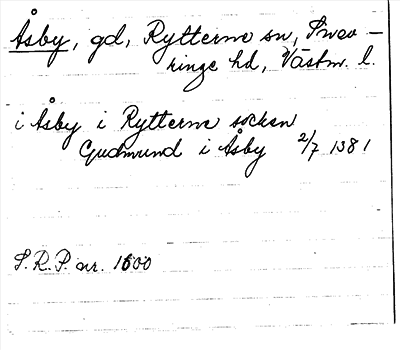 Åsby, gd, Rytterne sn, Snev-
ringe hd, Västm. l.
i Åsby i Rytterne socken
Gudmund i Åsby 2/7 1381
S.R.P. nr. 1600